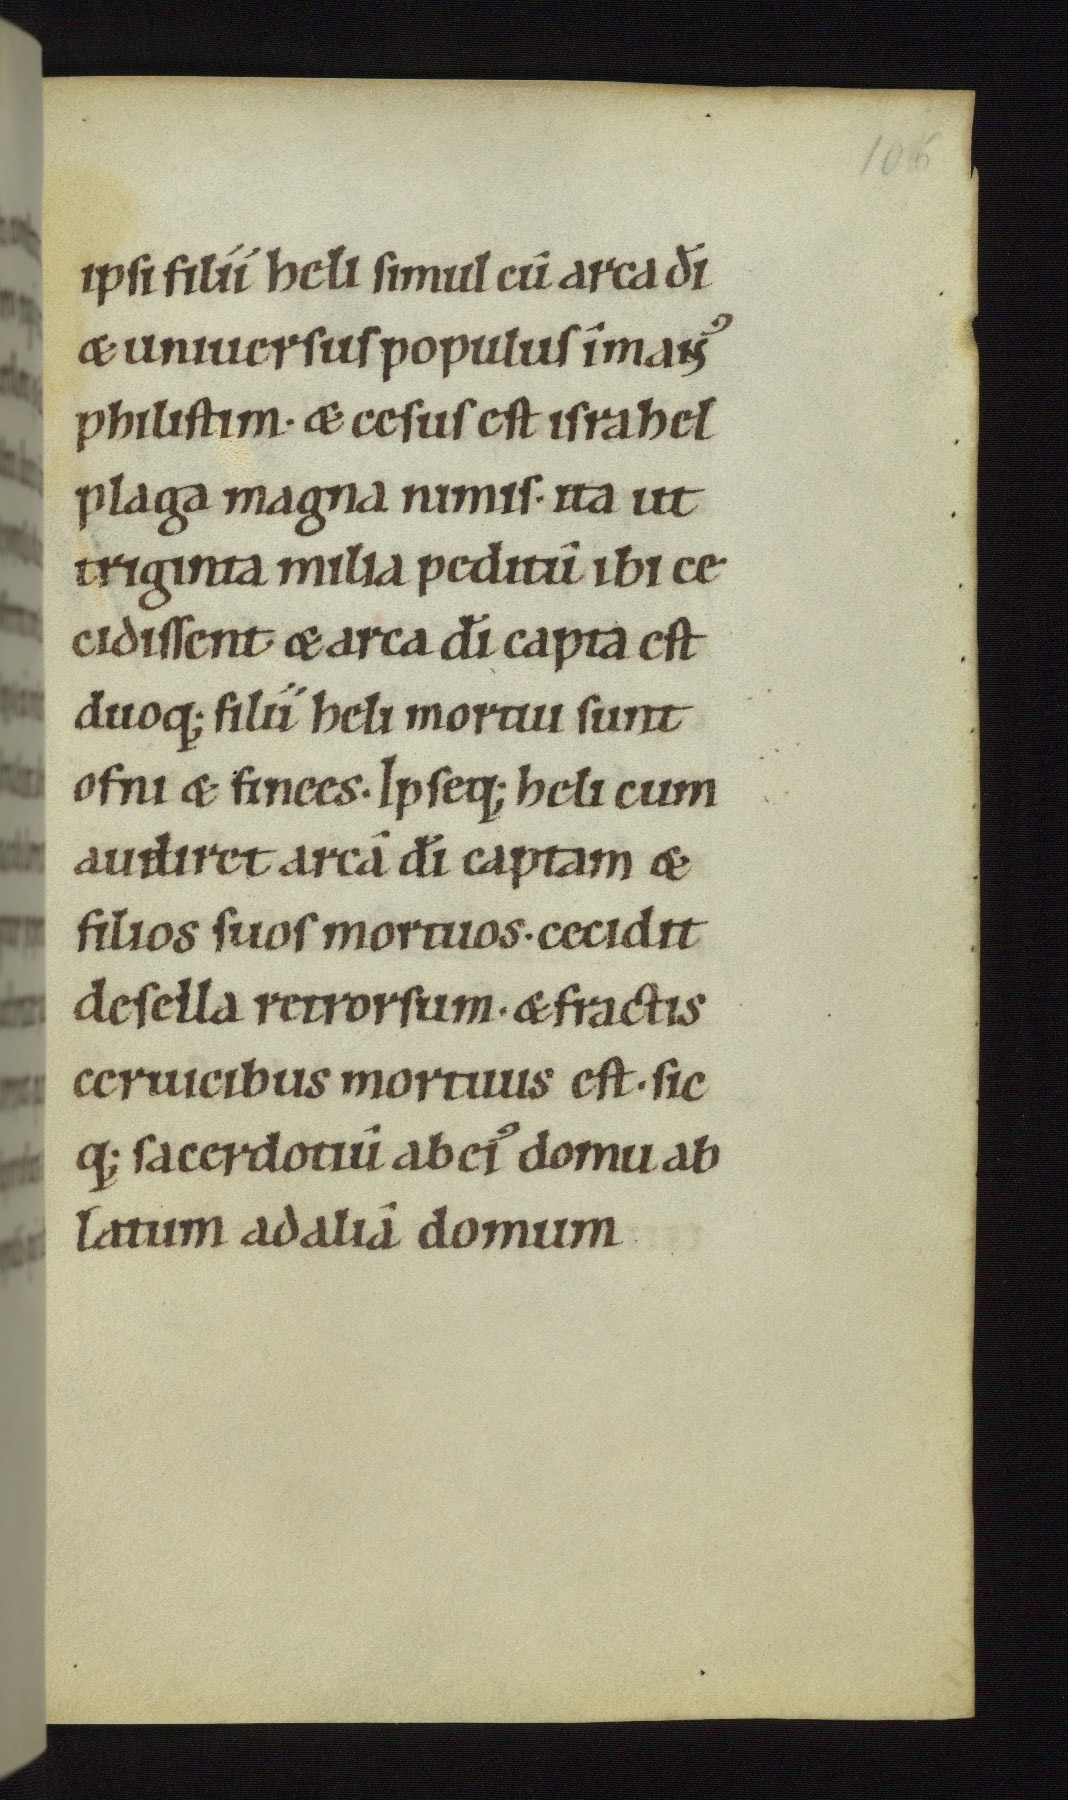 106
ipsi filii heli simul cū arca dī
& uniuersus populus īmanꝰ
philistim· & cesus est israhel
plaga magna nimis· ita ut
triginta milia peditū ibi ce
cidissent & arca dī capta est
duoq; filii heli mortui sunt
ofni & finees· Ipseq; heli cum
audiret arcā dī captam &
filios suos mortuos· cecidit
desella retrorsum· & fractis
ceruicibus mortuus est· sic
q; sacerdotiū ab eiꝰ domu ab
latum ad aliā domum